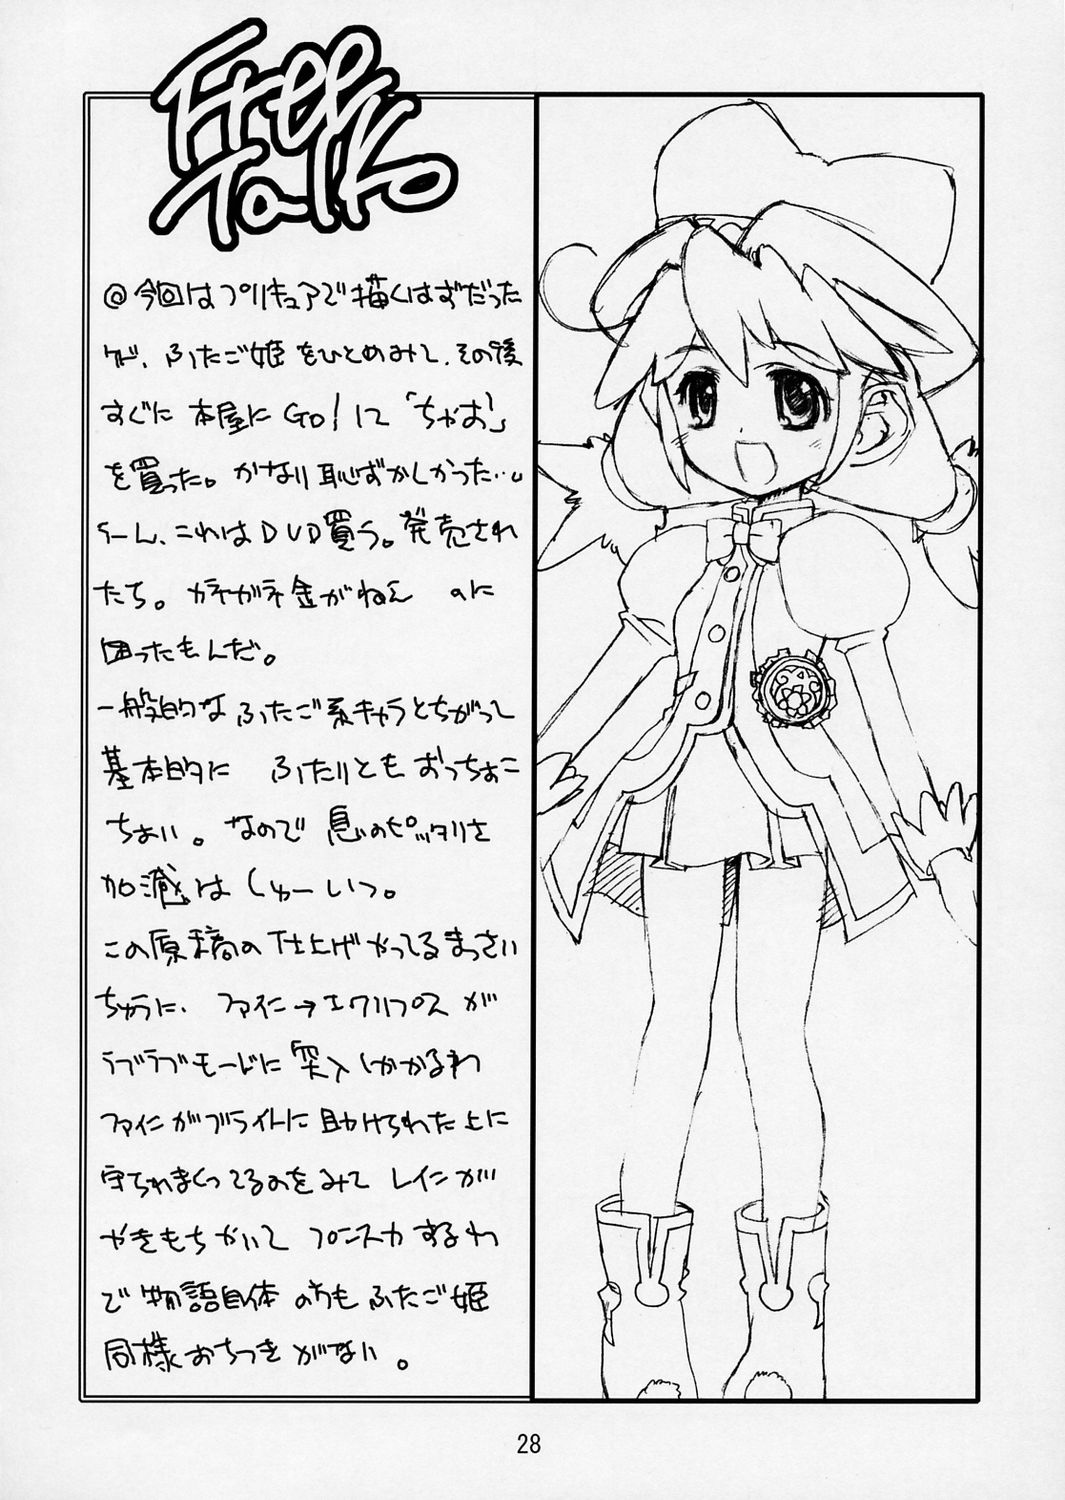 Free
Talk
@今回はプリキュアで描くはずだった
けど、ふたご姫をひとめみて、その後
すぐに本屋にGO!して「ちゃお」
を買った。かなり恥ずかしかった…。
うーん、これはDVD買う。発売され
たち。ガネガネ金がねえ のに
困ったもんだ。
一般的なふたご系キャラとちがって
基本的に ふたりともおっちょこ
ちょい。なので息のピッタリさ
加減はしゅーいつ。
この原稿の仕上げやってるまっさい
ちゅうに、ファイン→エクリプスが
ラブラブモードに突入しかかるわ
ファインがブライトに助けられた上に
守られまくってるのをみてレインが
やきもちやいてプンスカするわ
で物語自体のほうもふたご姫
同様おちつきがない。
28